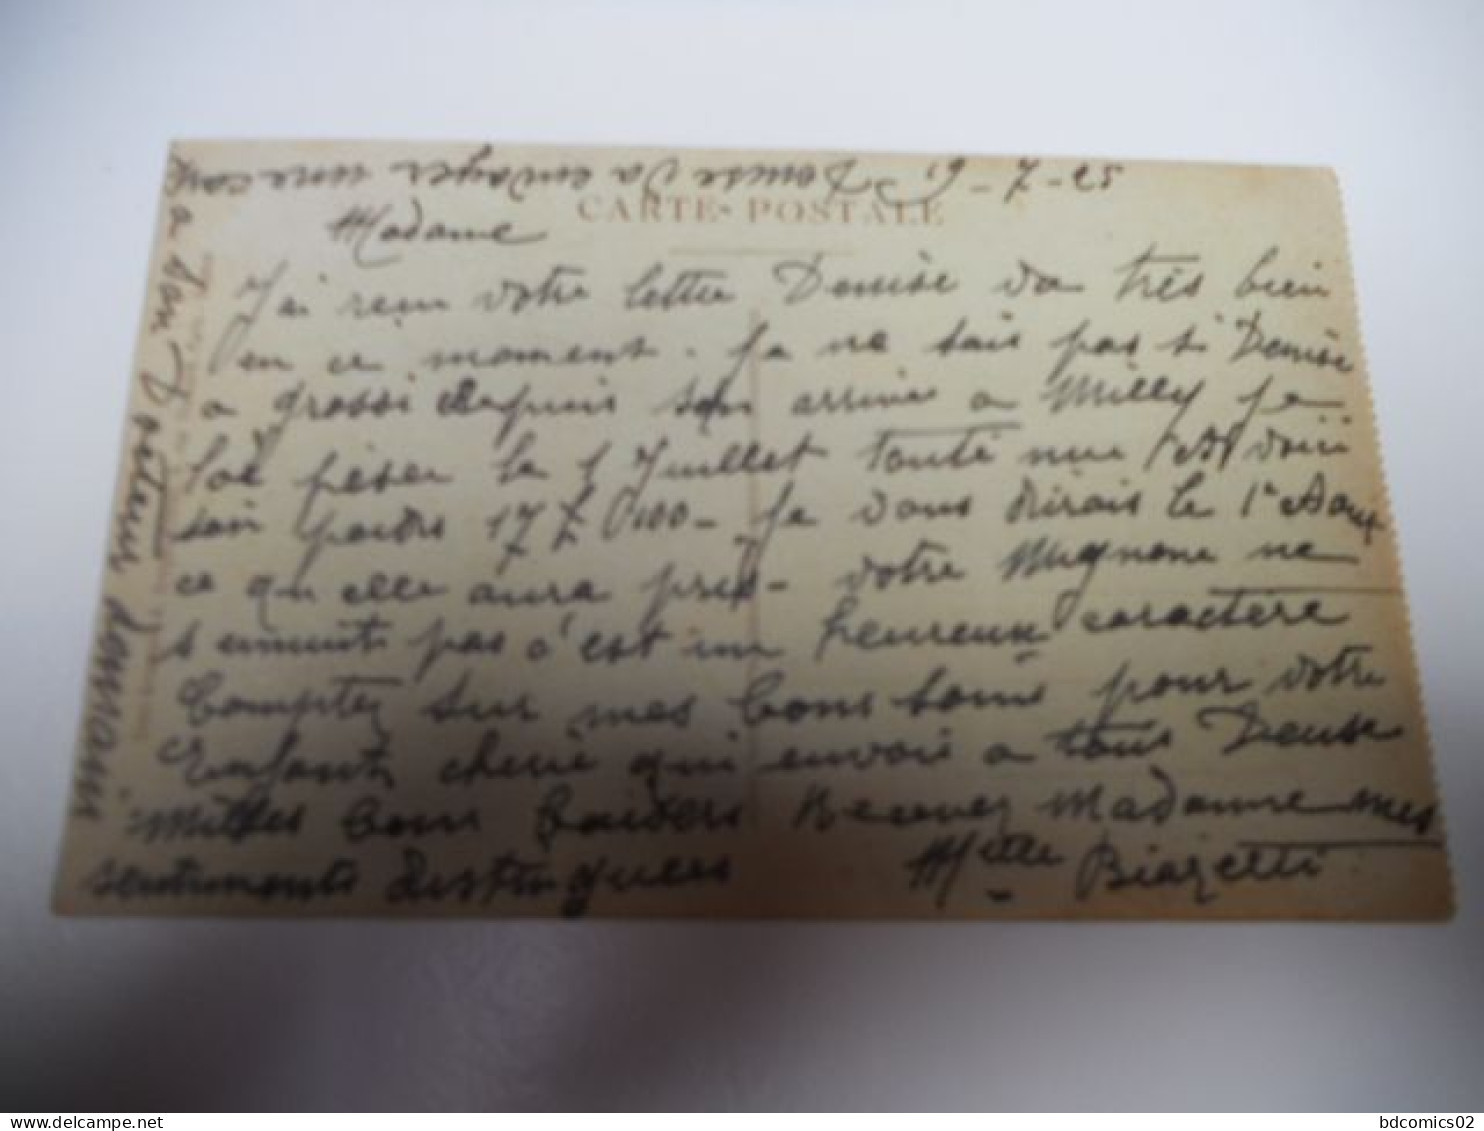 19-7-25
CARTE POSTALE
Madame
J'ai reçu votre lettre Denise va très bien
en ce moment. Je ne sais pas si Denise
a grossi depuis son arrivée a Milly je
l'ai peser le 1 Juillet toute nue voici
son poids 17 100 - Je vous dirais le 1er Aout
ce qu elle aura pris - votre Mignone ne
s ennuit pas c'est un heureux caractère
Comptez sur mes bons soins pour votre
Enfant cherie qui envoie a tous Denise
milles bons baisers Recevez Madame mes
sentiments distingues Melle Biazetti
Denise va envoyer une carte
a son peteur demain
bdcomics02